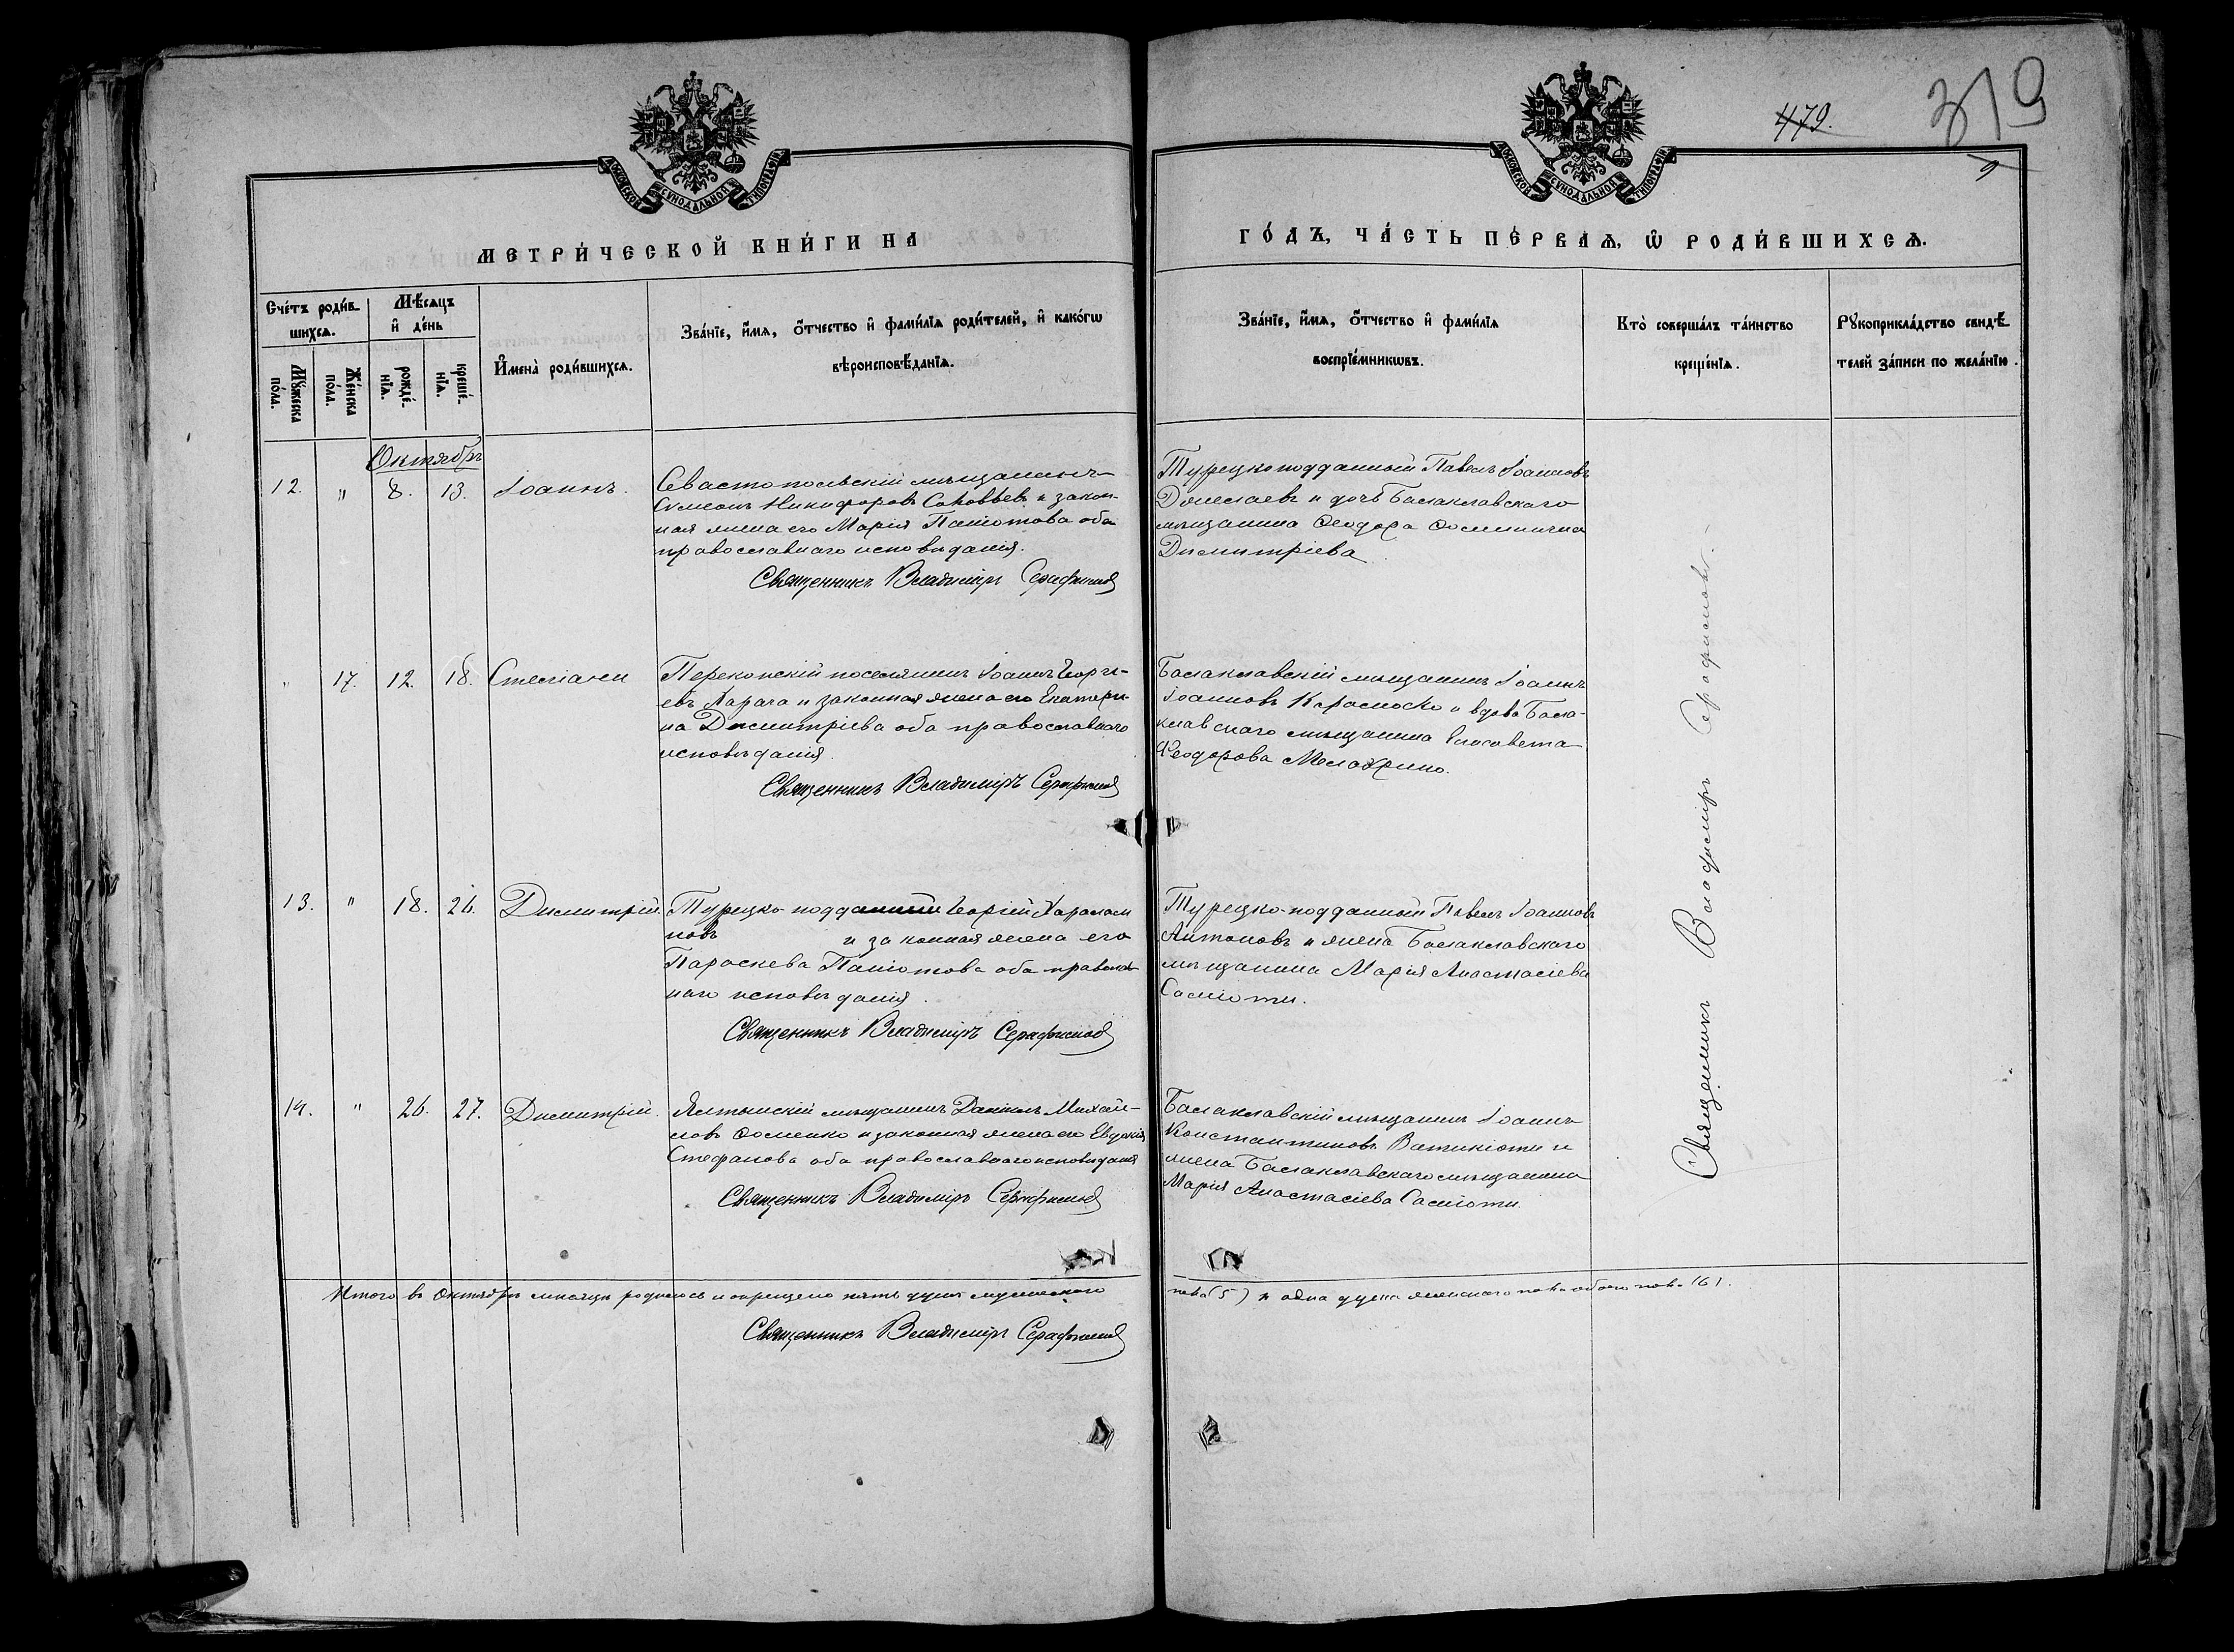 479.
319
МОСКОВСКОЙ СѴНОДАЛЬНОЙ ТИПОГРАФІИ
МОСКОВСКОЙ СѴНОДАЛЬНОЙ ТИПОГРАФІИ
МЕТРИ́ЧЕСКОЙ КНИ́ГИ НА
ГО́ДЪ, ЧА́СТЬ ПЕ́РВАѦ, Ѡ҆ РОДИ́ВШИХСѦ.
Сче́тъ роди́в-
шихсѧ.
Мꙋ́жеска по́ла.
Же́нска по́ла.
Мѣ́сѧцъ
и҆ де́нь
рожде́-
нїѧ.
креще́-
нїѧ.
И҆мена̀ роди́вшихсѧ.
Зва́нїе, и҆́мѧ, ѻ҆́тчество и҆ фами́лїѧ роди́телей, и҆ како́гѡ
вѣроисповѣ́данїѧ.
Зва́нїе, и҆́мѧ, ѻ҆́тчество и҆ фами́лїѧ
воспрїе́мникѡвъ.
Кто̀ соверша́лъ та́инство
креще́нїѧ.
Рꙋкоприкла́дство свидѣ́-
телей за́писи по жела́нїю.
Октябрь
12. " 8. 13. Іоаннъ.
Севастопольскій мѣщанинъ
Симеонъ Никифоровъ Соловьевъ и закон-
ная жена его Марія Панютова оба
православнаго исповѣданія.
Священникъ Владиміръ Серафимовъ
Турецкоподданный Павелъ Іоанновъ
и дочь Балаклавскаго
мѣщанина Ѳеодора
Димитріева
" 17. 12. 18. Стиліани
Перекопскій поселянинъ Іоаннъ Георгі-
евъ Карага и законная жена его Екатери-
на Димитріева оба православнаго
исповѣданія.
Священникъ Владиміръ Серафимовъ
Балаклавскій мѣщанинъ Іоаннъ
Іоанновъ и вдова Бала-
клавскаго мѣщанина Елисавета
Ѳеодорова
13. " 18. 26. Димитрій.
Турецко-подданный Георгій Харалам
повъ и законная жена его
Параскева Панютова оба православ
наго исповѣданія.
Священникъ Владиміръ Серафимовъ
Турецко-подданный Павелъ Іоанновъ
Антоновъ и жена Балаклавскаго
мѣщанина Марія Анастасіева
Саміоти.
14. " 26. 27. Димитрій.
Ялтинскій мѣщанинъ Даніилъ Михай-
ловъ Ѳоменко и законная жена его Евдокія
Стефанова оба православнаго исповѣданія
Священникъ Владиміръ Серафимовъ
Балаклавскій мѣщанинъ Іоаннъ
Константиновъ Ватикіоти и
жена Балаклавскаго мѣщанина
Марія Анастасіева Саміоти.
Священникъ Владиміръ Серафимовъ.
Итого въ Октябрѣ мѣсяцѣ родилось и окрещено пять душъ мужескаго
пола (5) и одна душа женскаго пола обоего пола (6).
Священникъ Владиміръ Серафимовъ